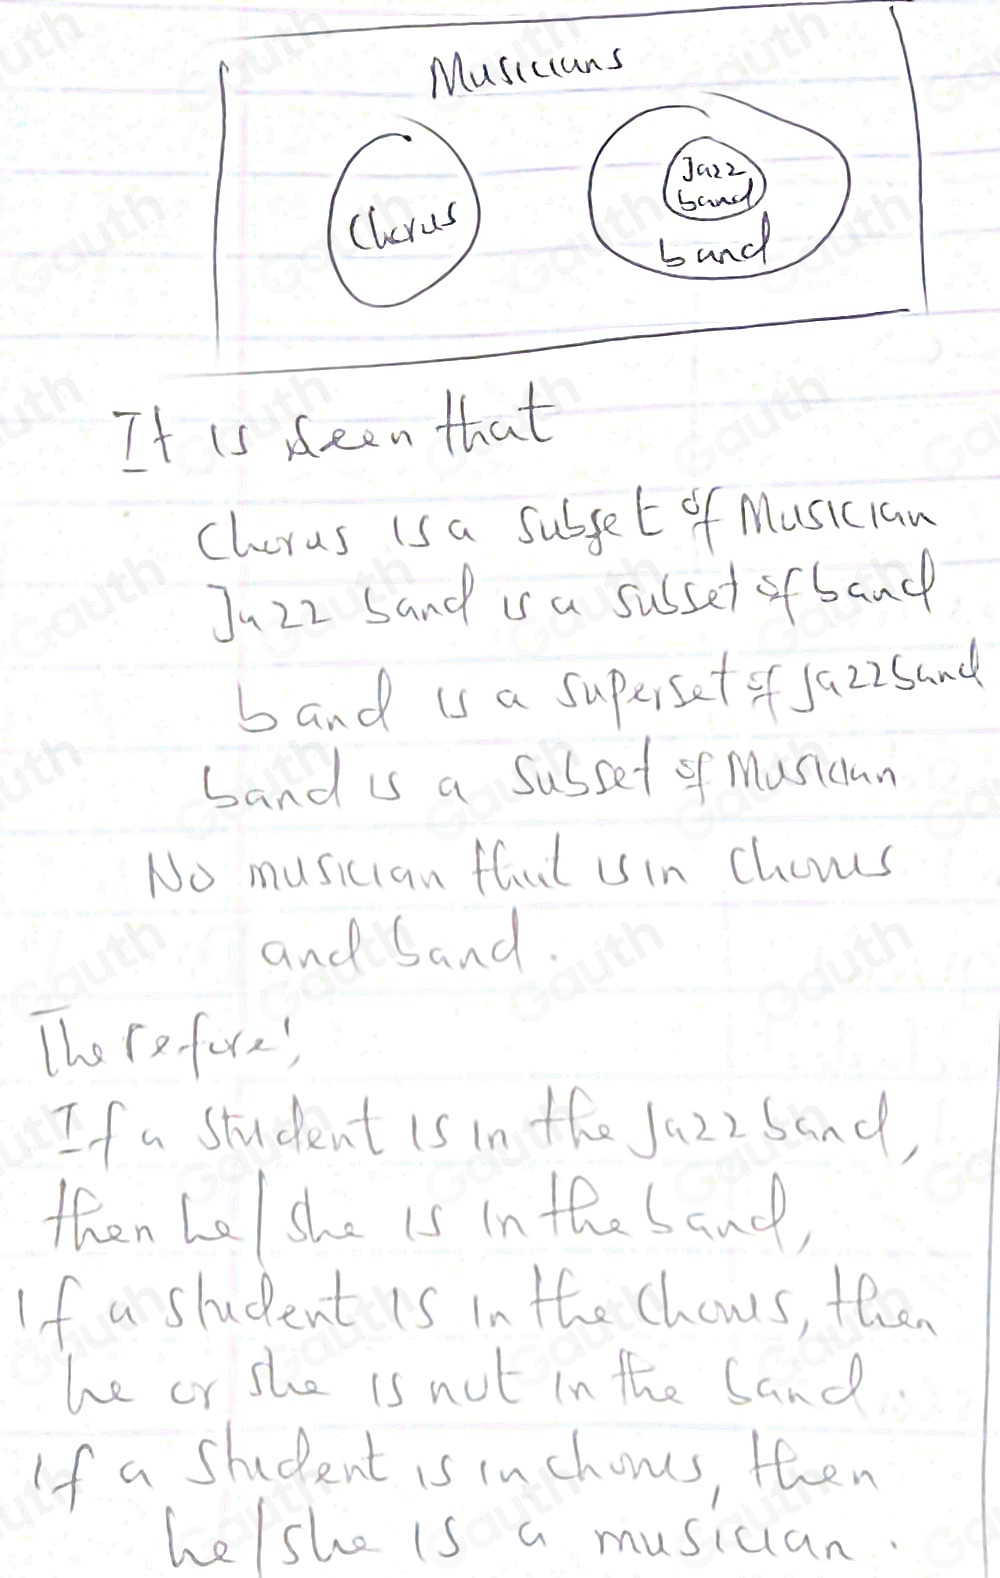 Musicians
Chorus
Jazz
band
band
It is seen that
Chorus is a subset of Musician
Jazz band is a subset of band
band is a superset of Jazz band
band is a subset of Musician
No musician that is in Chorus
and band.
Therefore,
If a student is in the Jazz band,
then he/she is in the band,
If a student is in the Chorus, then
he or she is not in the band.
If a student is in chorus, then
he/she is a musician.